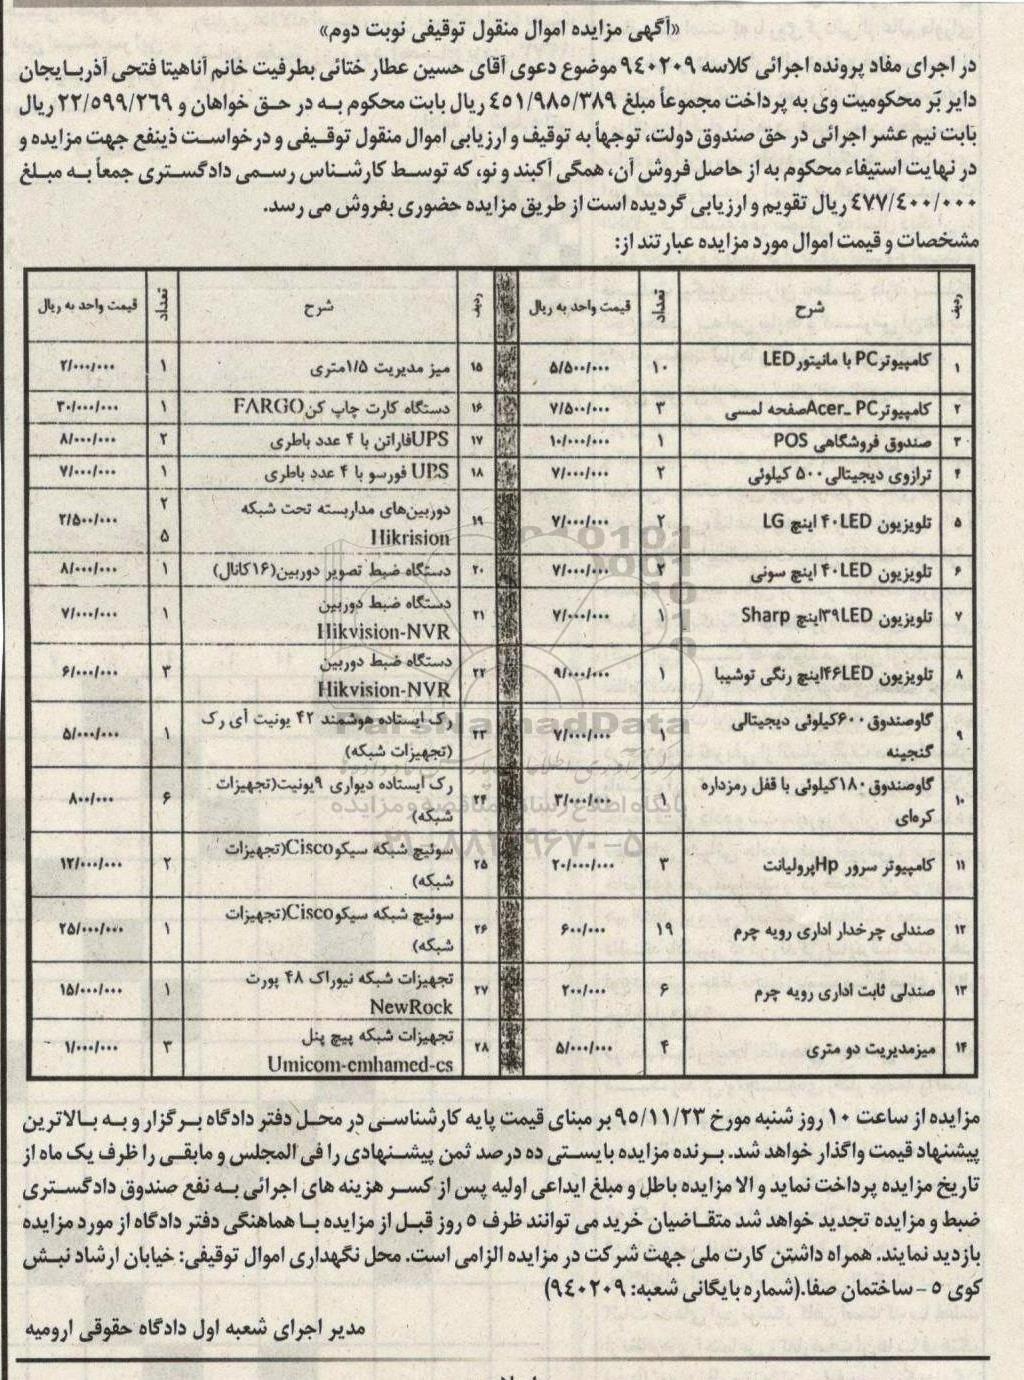 «آگهی مزایده اموال منقول توقیفی نوبت دوم»
در اجرای مفاد پرونده اجرائی کلاسه ۹٤۰۲۰۹ موضوع دعوی آقای حسین عطار ختائی بطرفیت خانم آناهیتا فتحی آذربایجان
دایر بَر محکومیت وی به پرداخت مجموعاً مبلغ ٤٥۱/۹۸٥/۳۸۹ ریال بابت محکوم به در حق خواهان و ۲۲/٥۹۹/۲٦۹ ریال
بابت نیم عشر اجرائی در حق صندوق دولت، توجهاً به توقیف و ارزیابی اموال منقول توقیفی و درخواست ذینفع جهت مزایده و
در نهایت استیفاء محکوم به از حاصل فروش آن، همگی آکبند و نو، که توسط کارشناس رسمی دادگستری جمعاً به مبلغ
٤۷۷/٤۰۰/۰۰۰ ریال تقویم و ارزیابی گردیده است از طریق مزایده حضوری بفروش می رسد.
مشخصات و قیمت اموال مورد مزایده عبارتند از:
ردیف شرح تعداد قیمت واحد به ریال ردیف شرح تعداد قیمت واحد به ریال
۱ کامپیوترPC با مانیتورLED ۱۰ ۵/۵۰۰/۰۰۰ ۱۵ میز مدیریت ۱/۵متری ۱ ۲/۰۰۰/۰۰۰
۲ کامپیوترAcer_ PCصفحه لمسی ۳ ۷/۵۰۰/۰۰۰ ۱۶ دستگاه کارت چاپ کنFARGO ۱ ۳۰/۰۰۰/۰۰۰
۳ صندوق فروشگاهی POS ۱ ۱۰/۰۰۰/۰۰۰ ۱۷ UPSفاراتن با ۴ عدد باطری ۲ ۸/۰۰۰/۰۰۰
۴ ترازوی دیجیتالی۵۰۰ کیلوئی ۲ ۷/۰۰۰/۰۰۰ ۱۸ UPS فورسو با ۴ عدد باطری ۱ ۷/۰۰۰/۰۰۰
۵ تلویزیون ۴۰LED اینچ LG ۲ ۷/۰۰۰/۰۰۰ ۱۹ دوربین‌های مداربسته تحت شبکه ۲ ۲/۵۰۰/۰۰۰
Hikrision ۵
۶ تلویزیون ۴۰LED اینچ سونی ۲ ۷/۰۰۰/۰۰۰ ۲۰ دستگاه ضبط تصویر دوربین(۱۶کانال) ۱ ۸/۰۰۰/۰۰۰
۷ تلویزیون ۳۹LEDاینچ Sharp ۱ ۷/۰۰۰/۰۰۰ ۲۱ دستگاه ضبط دوربین ۱ ۷/۰۰۰/۰۰۰
Hikvision-NVR
۸ تلویزیون ۴۶LEDاینچ رنگی توشیبا ۱ ۹/۰۰۰/۰۰۰ ۲۲ دستگاه ضبط دوربین ۳ ۶/۰۰۰/۰۰۰
Hikvision-NVR
۹ گاوصندوق۶۰۰کیلوئی دیجیتالی ۱ ۷/۰۰۰/۰۰۰ ۲۳ رک ایستاده هوشمند ۴۲ یونیت آی رک ۱ ۵/۰۰۰/۰۰۰
گنجینه (تجهیزات شبکه)
۱۰ گاوصندوق۱۸۰کیلوئی با قفل رمزداره ۱ ۳/۰۰۰/۰۰۰ ۲۴ رک ایستاده دیواری ۹یونیت(تجهیزات ۶ ۸۰۰/۰۰۰
کره‌ای شبکه)
۱۱ کامپیوتر سرور Hpپرولیانت ۳ ۲۰/۰۰۰/۰۰۰ ۲۵ سوئیچ شبکه سیکوCisco(تجهیزات ۲ ۱۲/۰۰۰/۰۰۰
شبکه)
۱۲ صندلی چرخدار اداری رویه چرم ۱۹ ۶۰۰/۰۰۰ ۲۶ سوئیچ شبکه سیکوCisco(تجهیزات ۱ ۲۵/۰۰۰/۰۰۰
شبکه)
۱۳ صندلی ثابت اداری رویه چرم ۶ ۲۰۰/۰۰۰ ۲۷ تجهیزات شبکه نیوراک ۴۸ پورت ۱ ۱۵/۰۰۰/۰۰۰
NewRock
۱۴ میزمدیریت دو متری ۴ ۵/۰۰۰/۰۰۰ ۲۸ تجهیزات شبکه پیچ پنل ۳ ۱/۰۰۰/۰۰۰
Umicom-emhamed-cs
ParsNamadData
پایگاه اطلاع رسانی مناقصه و مزایده
مزایده از ساعت ۱۰ روز شنبه مورخ ۹٥/۱۱/۲۳ بر مبنای قیمت پایه کارشناسی در محل دفتر دادگاه برگزار و به بالاترین
پیشنهاد قیمت واگذار خواهد شد. برنده مزایده بایستی ده درصد ثمن پیشنهادی را فی المجلس و مابقی را ظرف یک ماه از
تاریخ مزایده پرداخت نماید و الا مزایده باطل و مبلغ ایداعی اولیه پس از کسر هزینه های اجرائی به نفع صندوق دادگستری
ضبط و مزایده تجدید خواهد شد متقاضیان خرید می توانند ظرف ٥ روز قبل از مزایده با هماهنگی دفتر دادگاه از مورد مزایده
بازدید نمایند. همراه داشتن کارت ملی جهت شرکت در مزایده الزامی است. محل نگهداری اموال توقیفی: خیابان ارشاد نبش
کوی ٥ - ساختمان صفا.(شماره بایگانی شعبه: ۹٤۰۲۰۹)
مدیر اجرای شعبه اول دادگاه حقوقی ارومیه